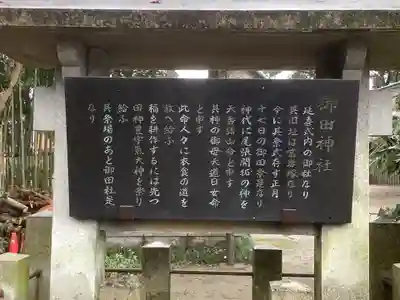 御田神社
延喜式内の御社なり
其旧址は京塚なり
今に其祭式存す正月
十七日の御田祭是なり
神代に尾張開拓の神を
天香語山命と申す
其神の御母天道日女命
と申す
此命人々に衣食の道を
教へ給ふ
稲を耕作するには先つ
国神豊宇気大神を祭り
給ふ
其祭場のあと御田社是
なり